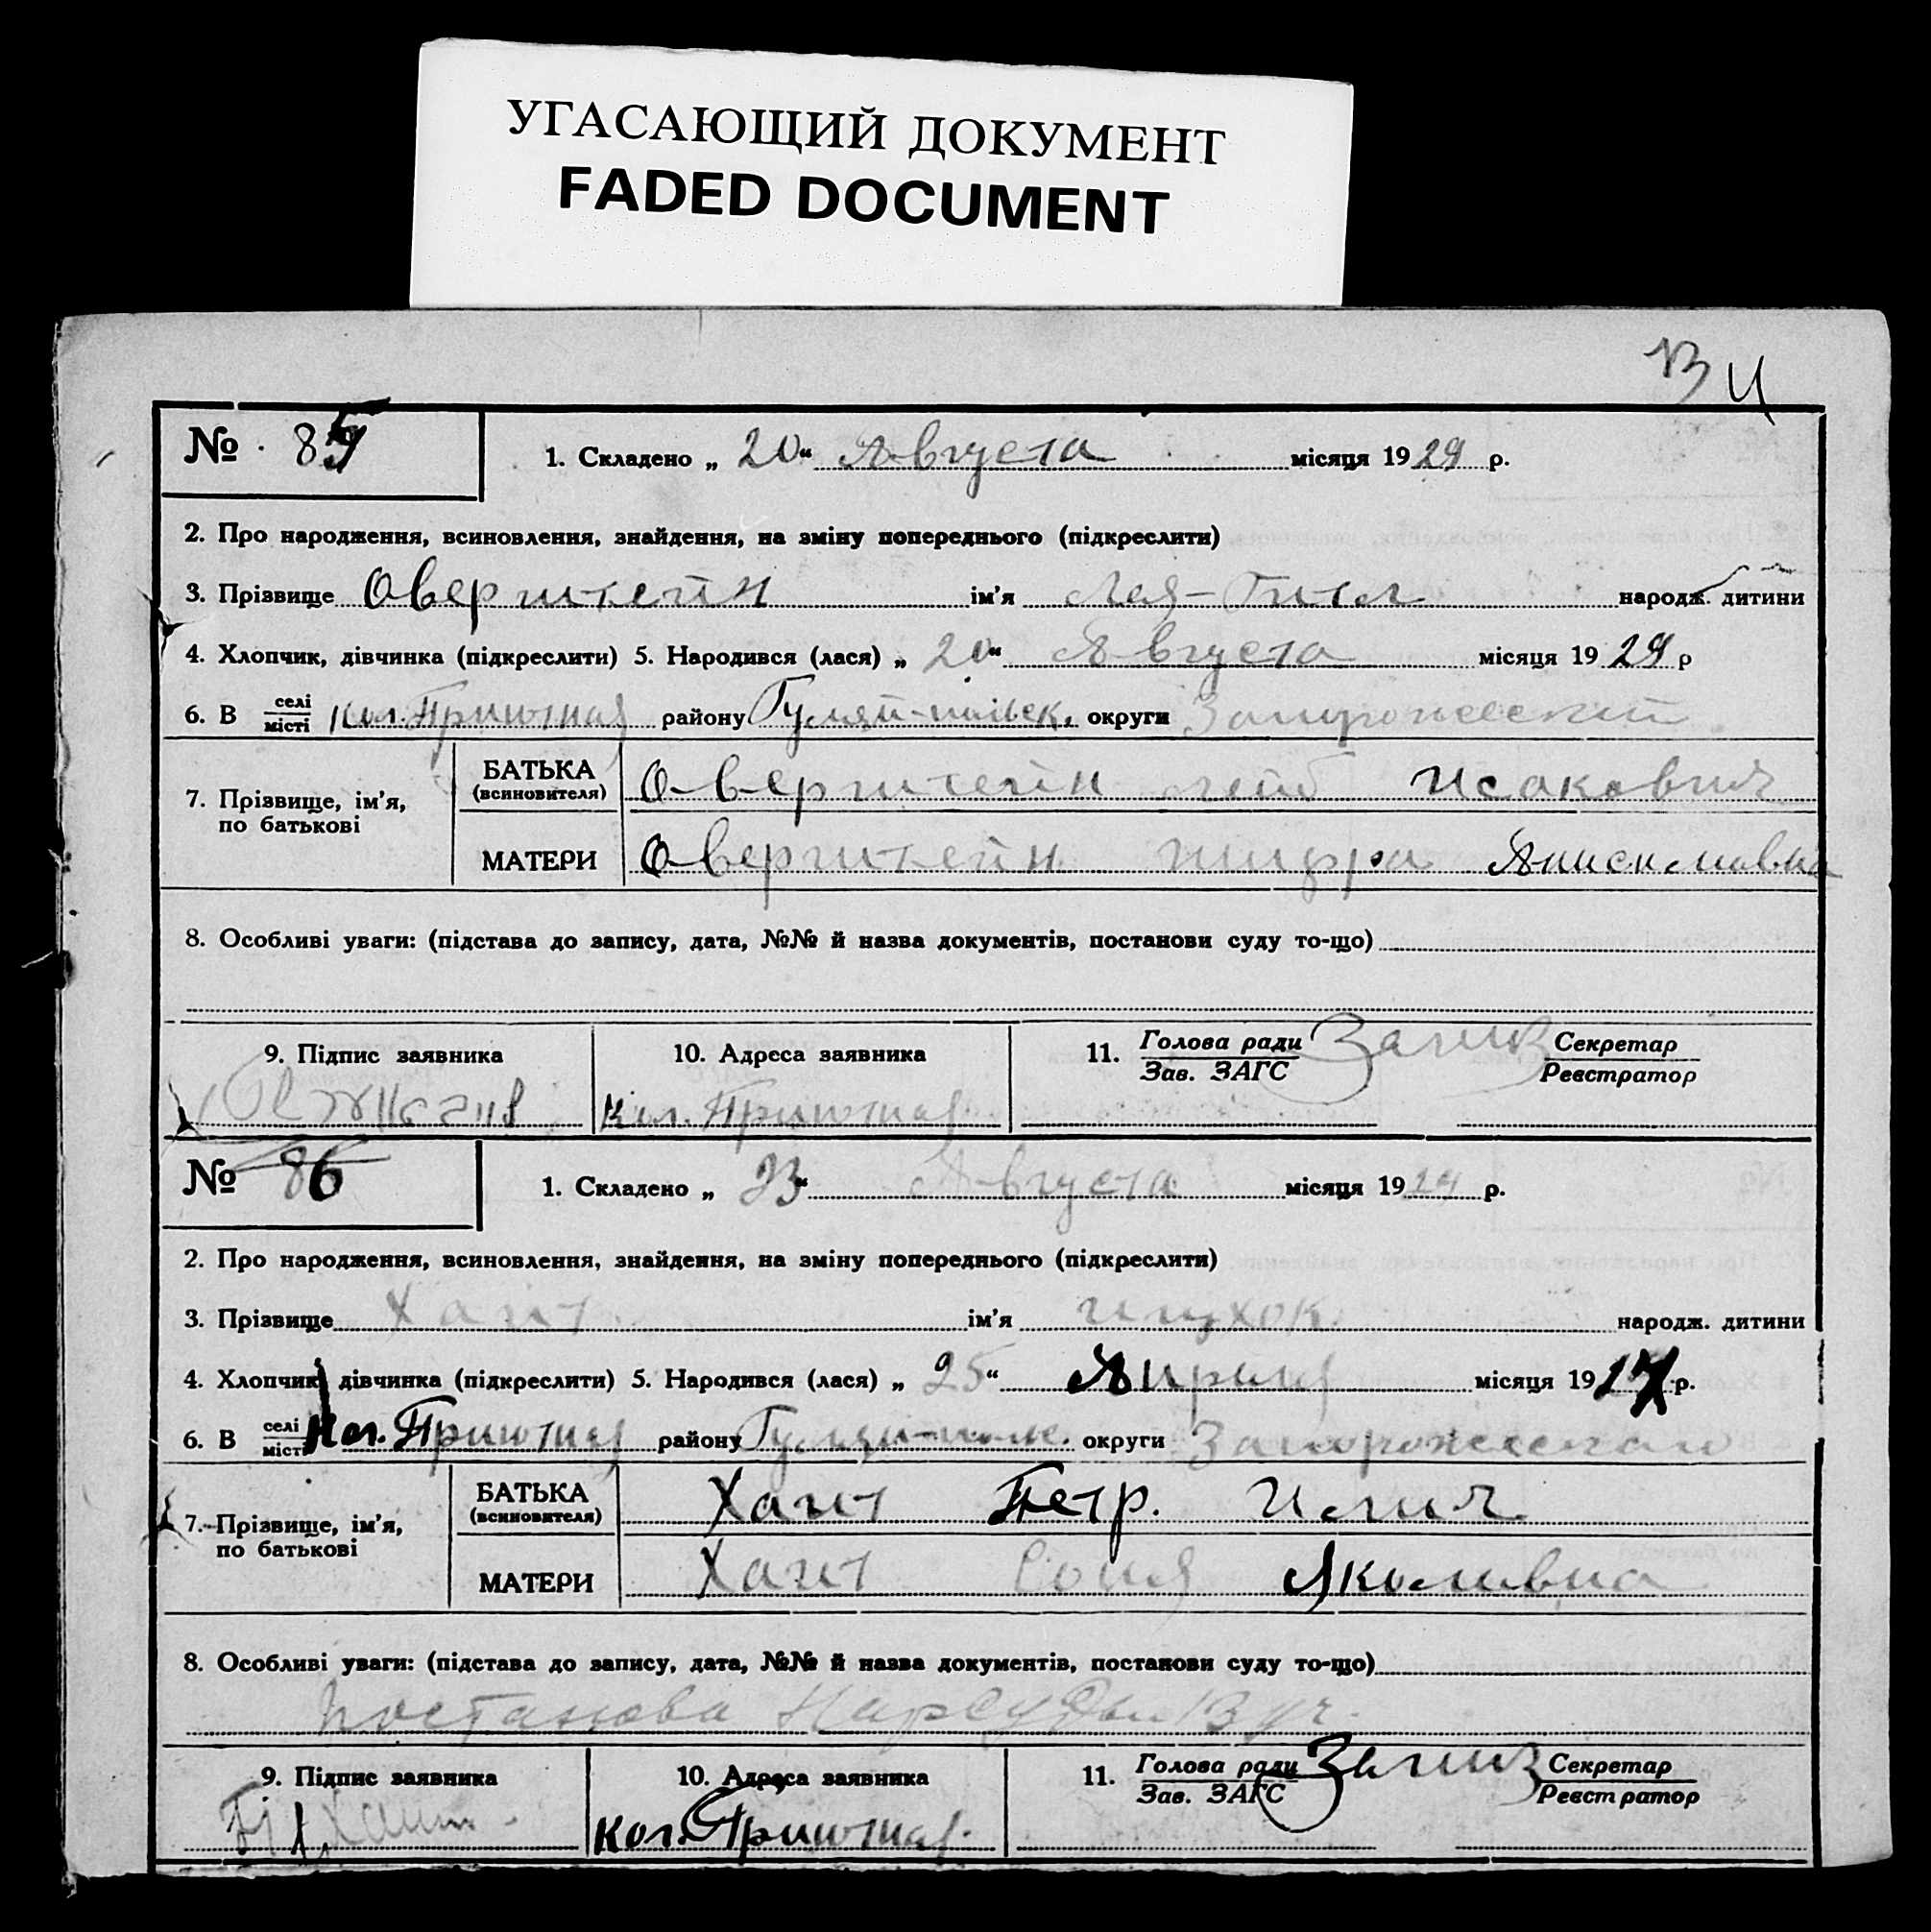 УГАСАЮЩИЙ ДОКУМЕНТ
FADED DOCUMENT
№ 85 1. Складено „ 20 “ Августа місяця 1929 р.
2. Про народження, всиновлення, знайдення, на зміну попереднього (підкреслити)
3. Прізвище Оверштейн ім’я Лея-Гитл народж. дитини
4. Хлопчик, дівчинка (підкреслити) 5. Народився (лася) „ 20 “ Августа місяця 1929 р
6. В селі/місті Кол. Приютная району Гуляй-польск. округи Запорожский
7. Прізвище, ім’я, по батькові
БАТЬКА (всиновителя) Оверштейн Лейб Исакович
МАТЕРИ Оверштейн Шифра Анисимовна
8. Особливі уваги: (підстава до запису, дата, №№ й назва документів, постанови суду то-що)
9. Підпис заявника 10. Адреса заявника 11. Голова ради/Зав. ЗАГС Секретар/Реєстратор
Кол. Приютная
№ 86 1. Складено „ 23 “ Августа місяця 1929 р.
2. Про народження, всиновлення, знайдення, на зміну попереднього (підкреслити)
3. Прізвище Хаит ім’я Ицхок народж. дитини
4. Хлопчик, дівчинка (підкреслити) 5. Народився (лася) „ 25 “ Априля місяця 19 р.
6. В селі/місті Кол. Приютная району Гуляй-польс. округи Запорожского
7. Прізвище, ім’я, по батькові
БАТЬКА (всиновителя) Хаит Петр. Илич
МАТЕРИ Хаит Соня Яколивна
8. Особливі уваги: (підстава до запису, дата, №№ й назва документів, постанови суду то-що)
Постанова Нарсуду 13 уч.
9. Підпис заявника 10. Адреса заявника 11. Голова ради/Зав. ЗАГС Секретар/Реєстратор
Хаит Кол. Приютная.